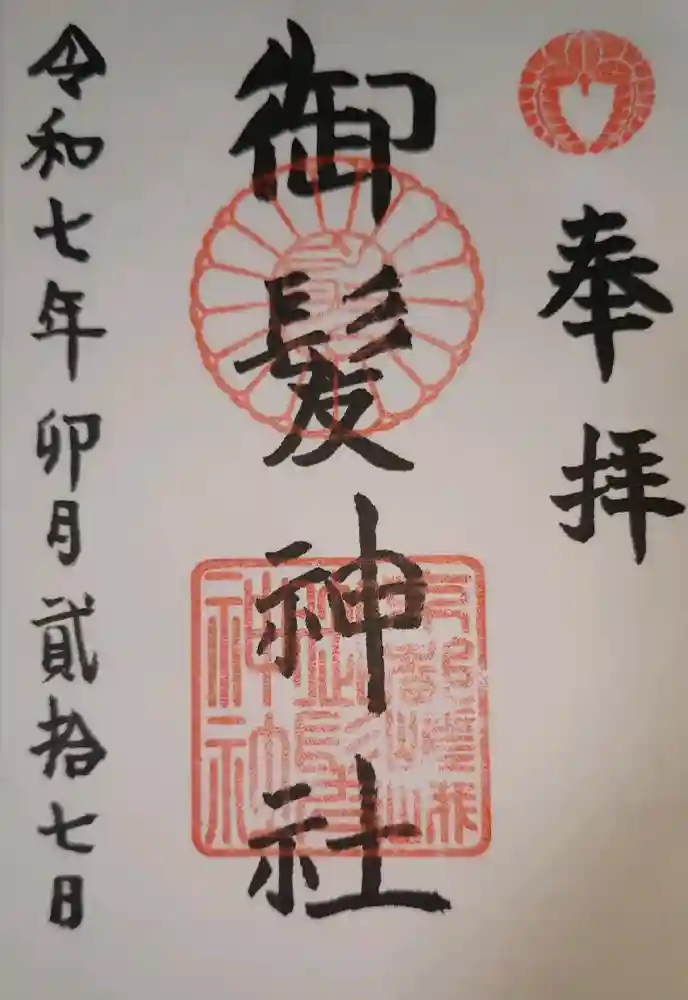 奉拝
御髪神社
令和七年卯月貳拾七日